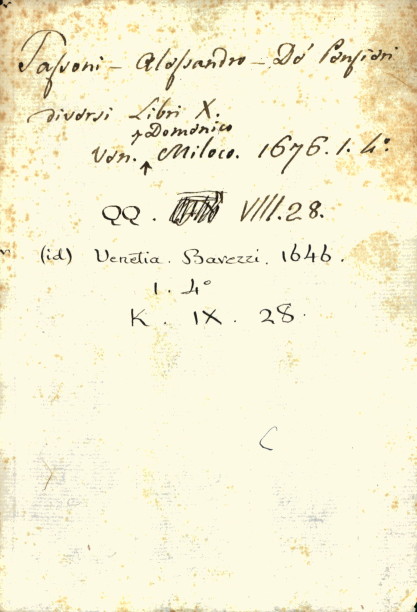 Tassoni - Alessandro - De' Pensieri
diversi Libri X.
Domenico
Ven. ↑ Miloco. 1676. 1. 4°
QQ. VIII. 28.
(id) Venetia. Barezzi. 1646.
1. 4°
K. IX. 28.